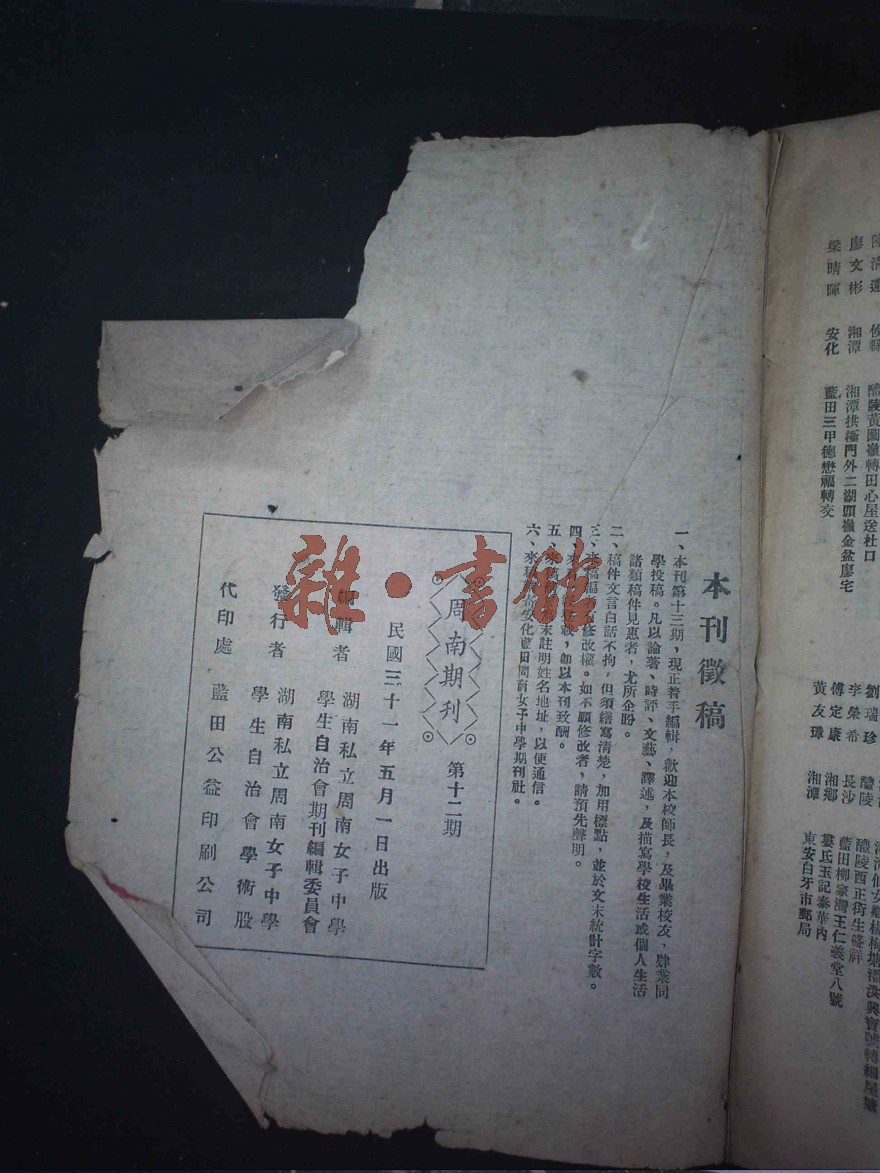 梁晴暉　安化　藍田三甲德懋福轉交
廖文彬　湘潭　湘潭拱極門外二湖頭嶺金盆廖宅
醴陵黃圖嶺轉田心屋送杜口
劉瑞珍　醴陵
李榮希　長沙　醴陵西正街生盛祥
傅定康　湘鄉　藍田柳家灣王仁義堂八號
黃友瑋　湘潭　婁氏玉記泰華內
東安白牙市郵局
本刊徵稿
一、本刊第十三期，現正着手編輯，歡迎本校師長，及畢業校友，肄業同
學投稿。凡以論著、時評、文藝、譯述，及描寫學校生活或個人生活
諸類稿件見惠者，尤所企盼。
二、稿件文言白話不拘，但須繕寫清楚，加用標點，並於文末統計字數。
三、來稿編者有修改權。如不願修改者，請預先聲明。
四、來稿登載，即以本刊致酬。
五、來稿末註明姓名地址，以便通信。
六、來稿安化藍田周南女子中學期刊社。
周南期刊　第十二期
民國三十一年五月一日出版
編輯者　湖南私立周南女子中學
學生自治會期刊編輯委員會
發行者　湖南私立周南女子中學
學生自治會學術股
代印處　藍田公益印刷公司
雜·書館